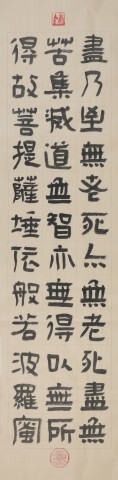 盡乃至無老死亦無老死盡無
苦集滅道無智亦無得以無所
得故菩提薩埵依般若波羅蜜